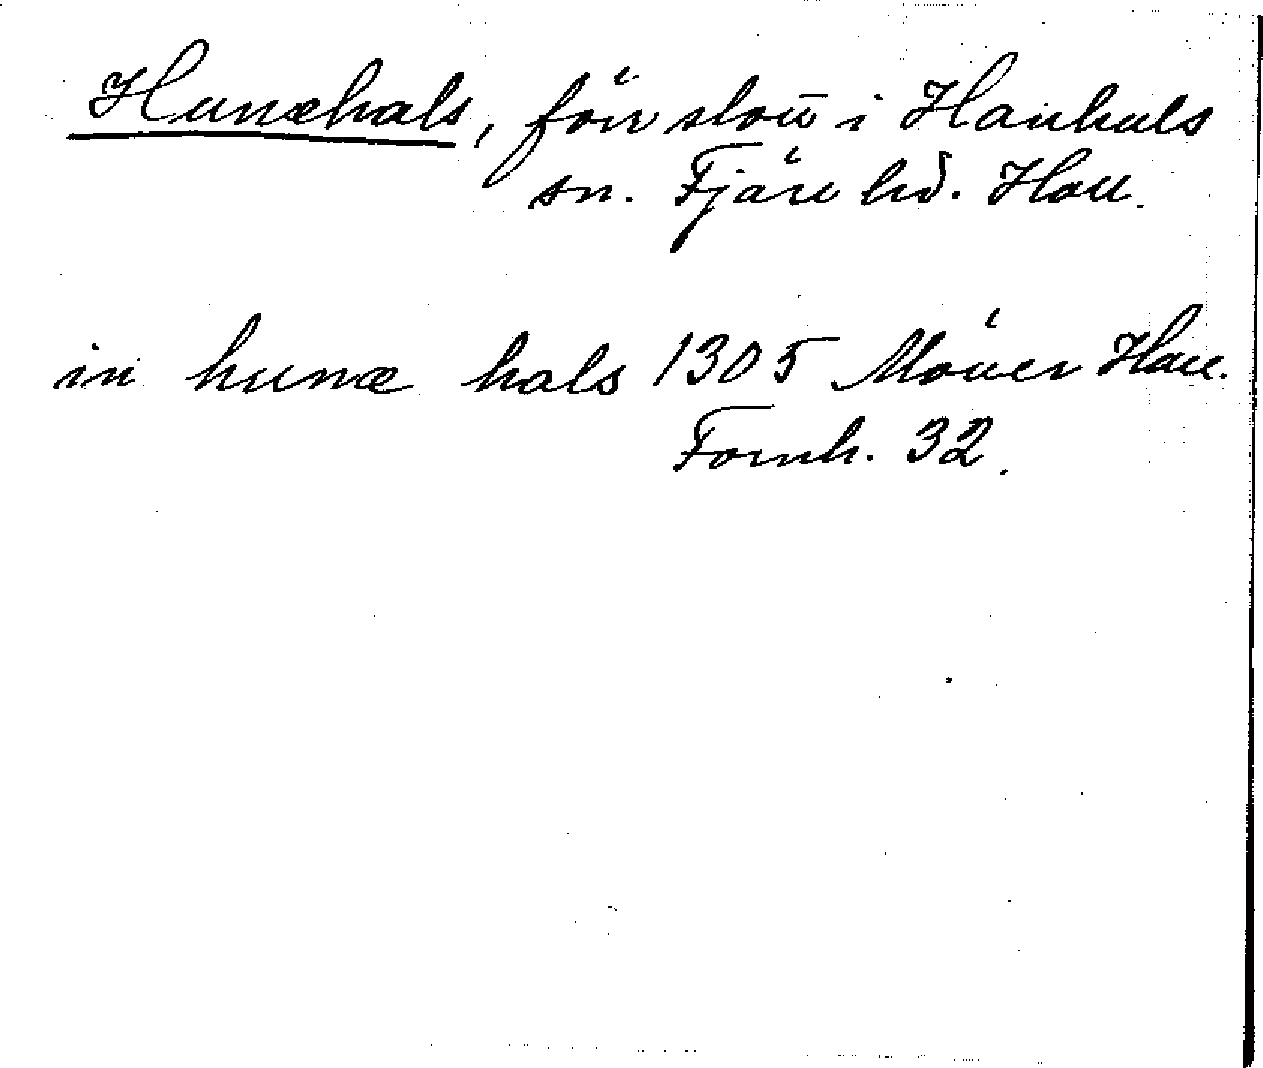 Hunæhals, förr slott i Hanhals
sn. Fjäre hd. Hall.
in hunæ hals 1305 Möller Hall.
Fornh. 32.